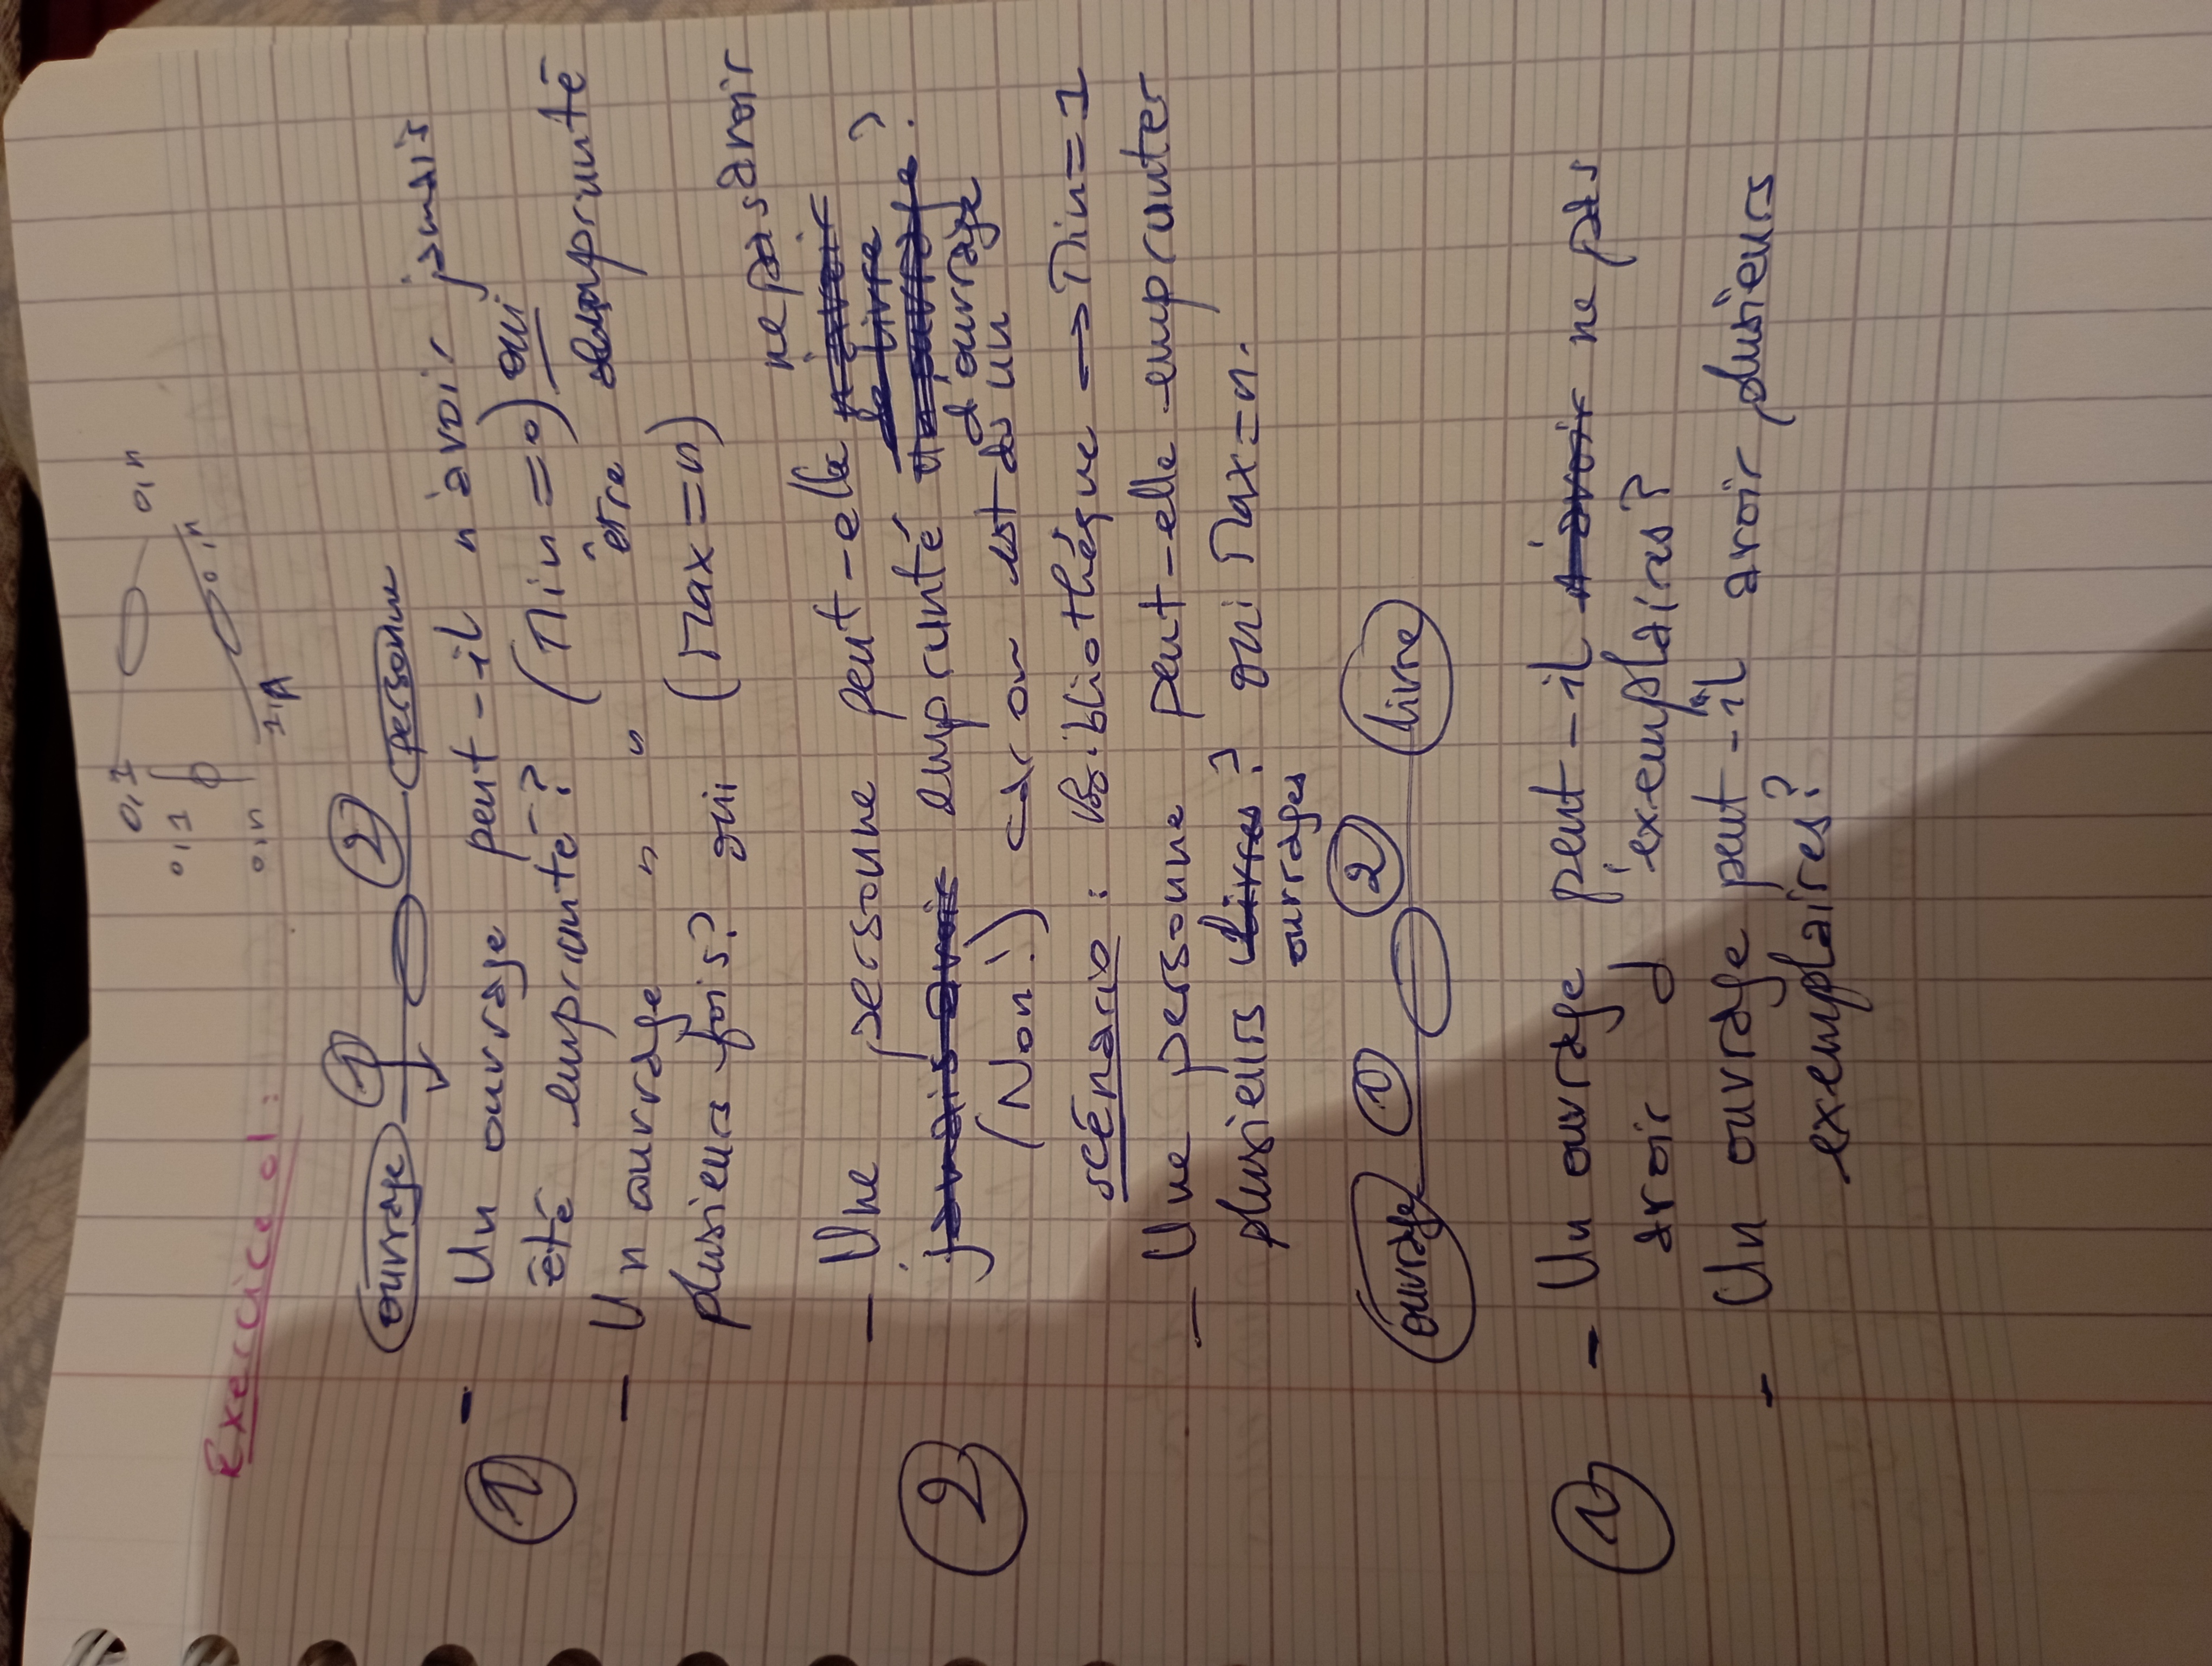 0,1 0,n
0,1 0,n
0,n 1,
Exercice 01 :
1 2
ouvrage personne
1 - Un ouvrage peut-il n'avoir jamais
été emprunté ? (Min = 0) oui
- Un ouvrage " " être emprunté
plusieurs fois ? oui (Max = n)
ne pas avoir
- Une personne peut-elle n'avoir
de livre
2 jamais avoir emprunté un ouvrage ?
d'ouvrage
(Non !) car on est ds un
scénario : Bibliothéque → Min = 1
- Une personne peut-elle emprunter
plusieurs livres ? oui Max = n.
ouvrages
ouvrage 1 2 livre
1 - Un ouvrage peut-il n'avoir ne pas
avoir d'exemplaires ?
- Un ouvrage peut-il avoir plusieurs
exemplaires ?